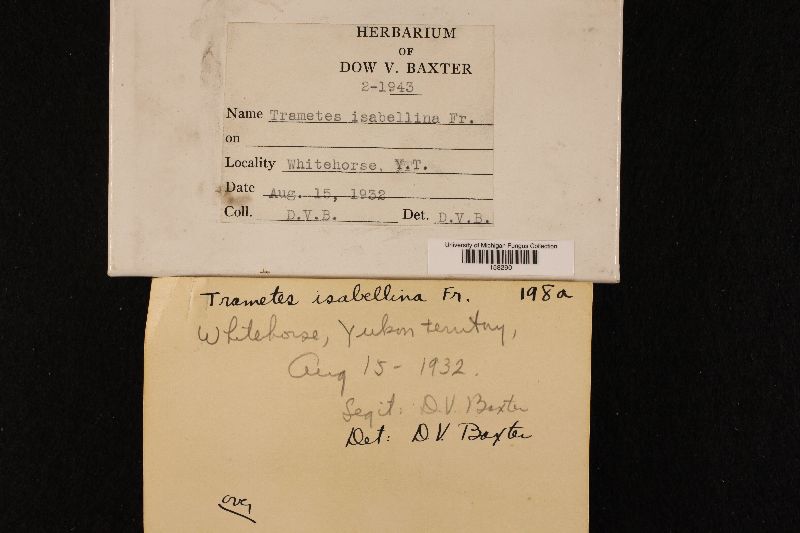 HERBARIUM
OF
DOW V. BAXTER
2-1943
Name Trametes isabellina Fr.
on
Locality Whitehorse, Y.T.
Date Aug. 15, 1932
Coll. D.V.B. Det. D.V.B.
University of Michigan Fungus Collection
Trametes isabellina Fr. 198a
Whitehorse, Yukon territory,
Aug 15 - 1932.
Legit: D.V. Baxter
Det: D.V. Baxter
over